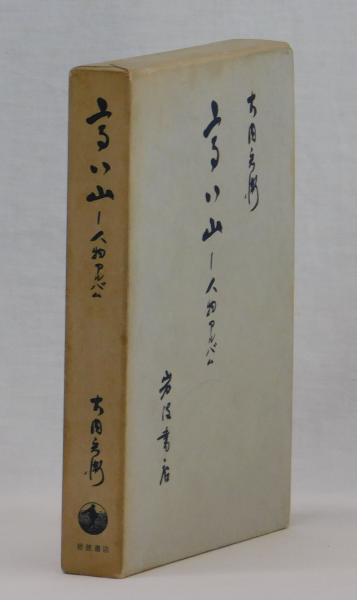 大内兵衛
高い山
―人物アルバム
岩波書店
高い山
―人物アルバム
大内兵衛
岩波書店